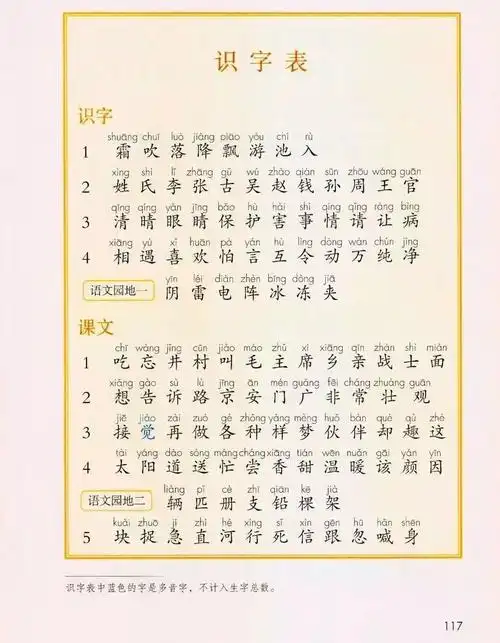 识字表
识字
shuāng chuī luò jiàng piāo yóu chí rù
1 霜 吹 落 降 飘 游 池 入
xìng shì lǐ zhāng gǔ wú zhào qián sūn zhōu wáng guān
2 姓 氏 李 张 古 吴 赵 钱 孙 周 王 官
qīng qíng yǎn jīng bǎo hù hài shì qíng qǐng ràng bìng
3 清 晴 眼 睛 保 护 害 事 情 请 让 病
xiāng yù xǐ huān pà yán hù lìng dòng wàn chún jìng
4 相 遇 喜 欢 怕 言 互 令 动 万 纯 净
yīn léi diàn zhèn bīng dòng jiā
语文园地一 阴 雷 电 阵 冰 冻 夹
课文
chī wàng jǐng cūn jiào máo zhǔ xí xiāng qīn zhàn shì miàn
1 吃 忘 井 村 叫 毛 主 席 乡 亲 战 士 面
xiǎng gào sù lù jīng ān mén guǎng fēi cháng zhuàng guān
2 想 告 诉 路 京 安 门 广 非 常 壮 观
jiē jiào zài zuò gè zhǒng yàng mèng huǒ bàn què qù zhè
3 接 觉 再 做 各 种 样 梦 伙 伴 却 趣 这
tài yáng dào sòng máng cháng xiāng tián wēn nuǎn gāi yán yīn
4 太 阳 道 送 忙 尝 香 甜 温 暖 该 颜 因
liàng pǐ cè zhī qiān kē jià
语文园地二 辆 匹 册 支 铅 棵 架
kuài zhuō jí zhí hé xíng sǐ xìn gēn hū hǎn shēn
5 块 捉 急 直 河 行 死 信 跟 忽 喊 身
识字表中蓝色的字是多音字，不计入生字总数。
117